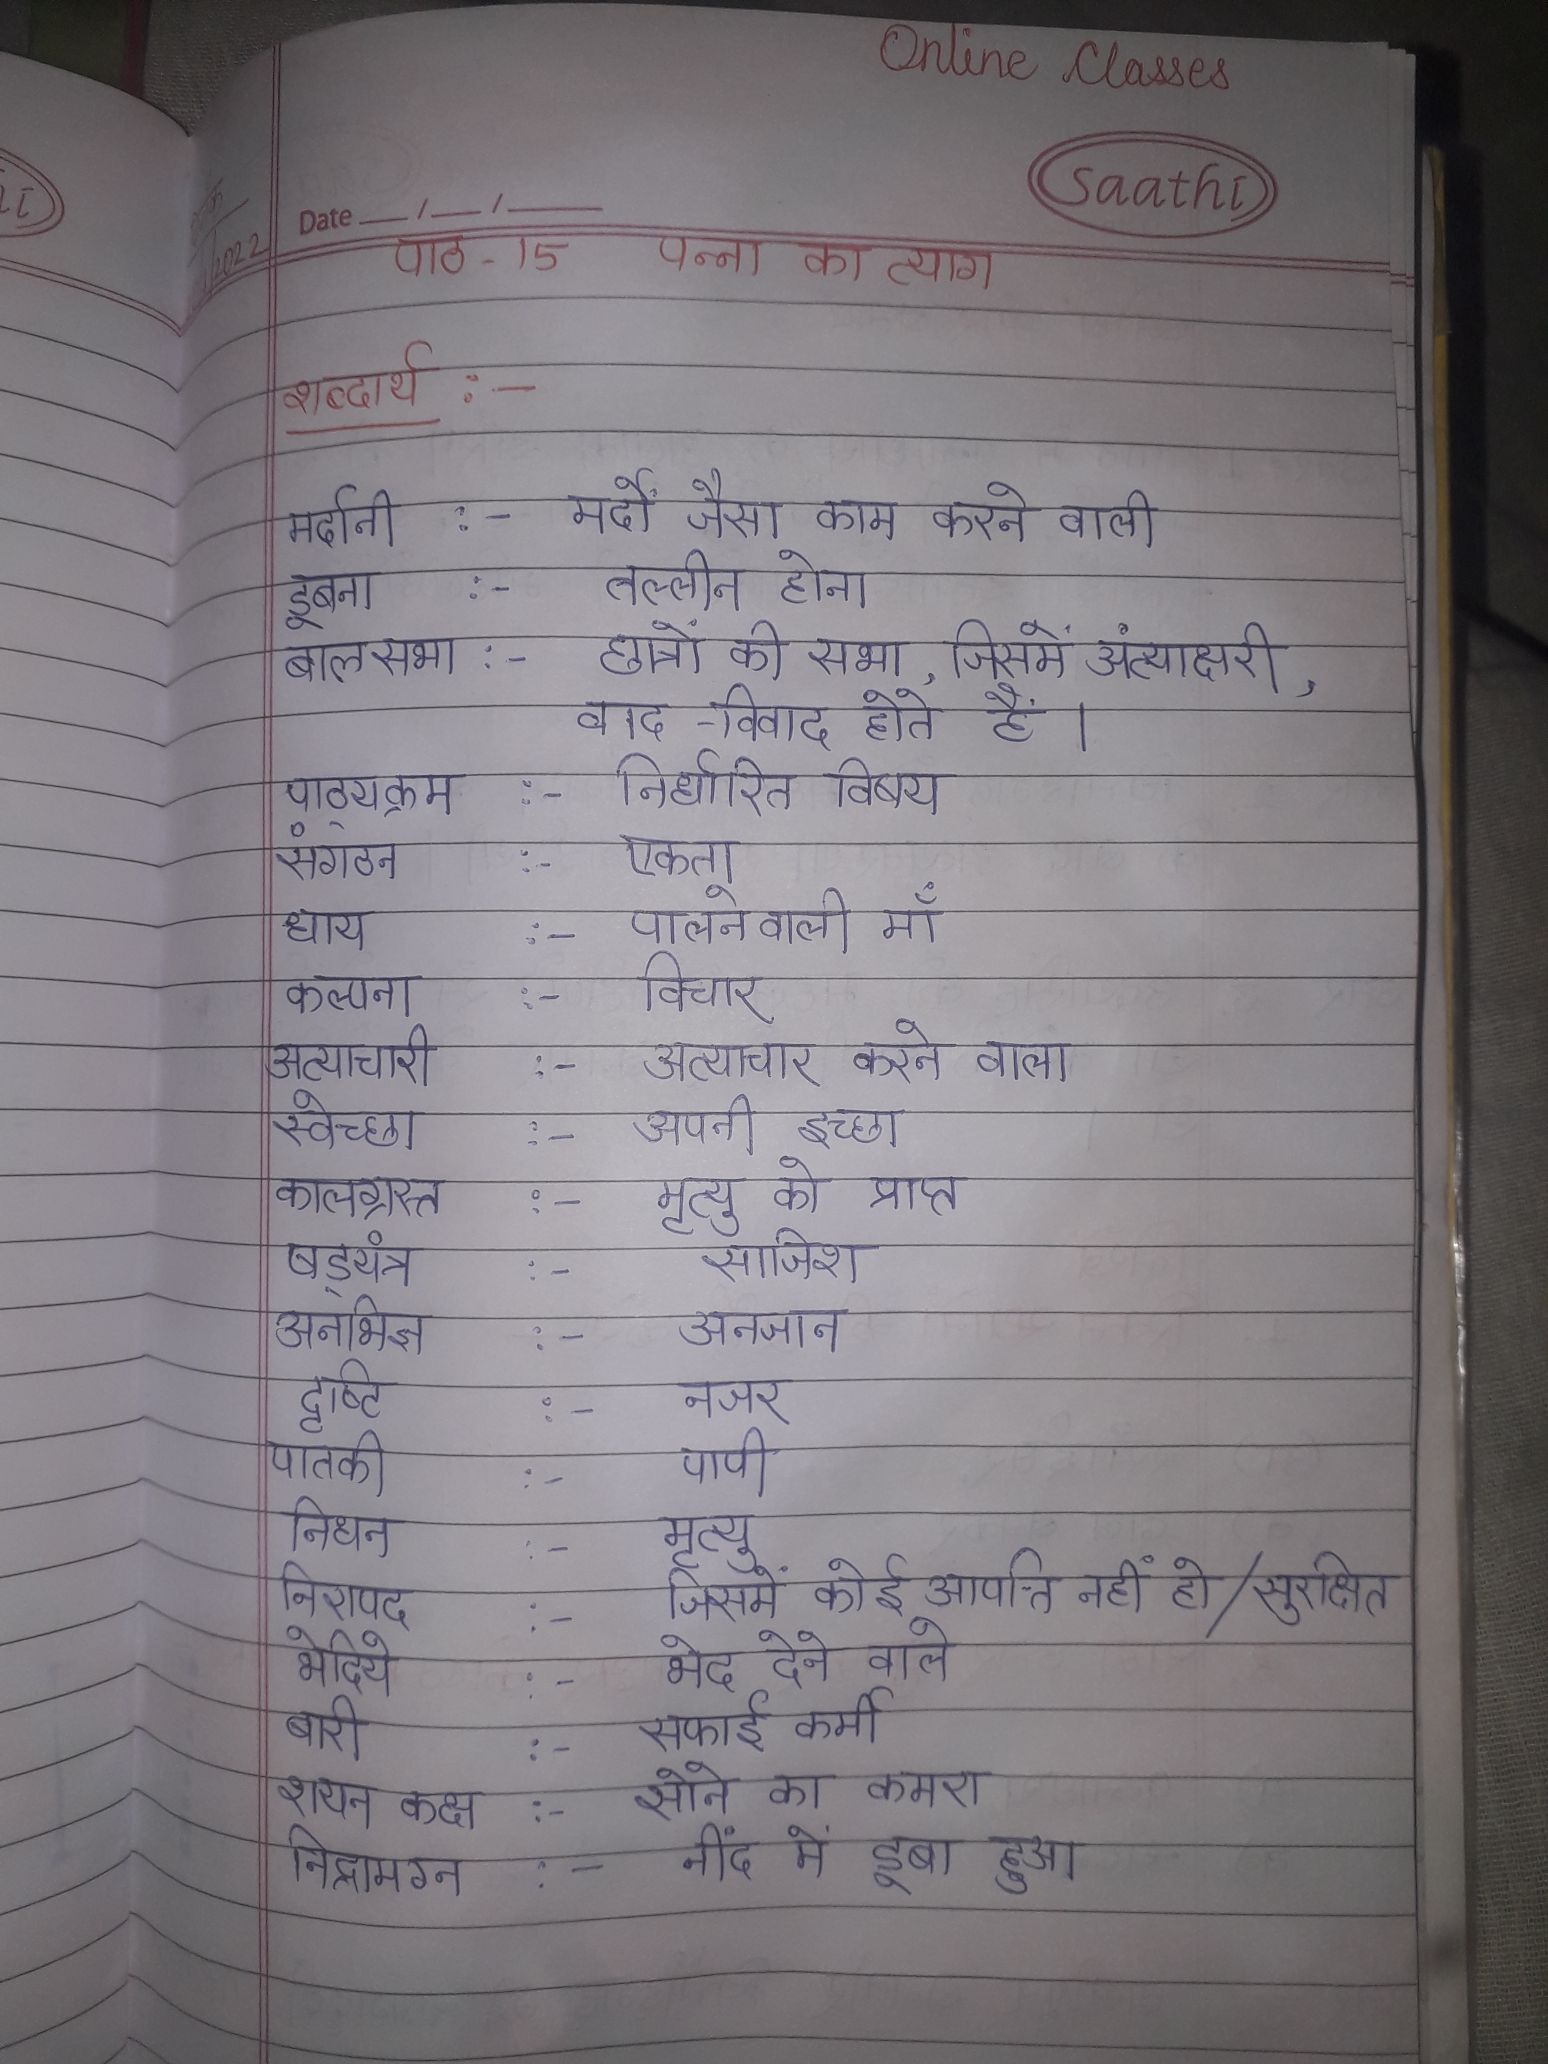 Online Classes
Saathi
Date __/__/____
2022
पाठ - 15 पन्ना का त्याग
शब्दार्थ :-
मर्दानी :- मर्दों जैसा काम करने वाली
डूबना :- तल्लीन होना
बालसभा :- छात्रों की सभा, जिसमें अंत्याक्षरी,
वाद -विवाद होते हैं ।
पाठ्यक्रम :- निर्धारित विषय
संगठन :- एकता
धाय :- पालनेवाली माँ
कल्पना :- विचार
अत्याचारी :- अत्याचार करने वाला
स्वेच्छा :- अपनी इच्छा
कालग्रस्त :- मृत्यु को प्राप्त
षड्यंत्र :- साजिश
अनभिज्ञ :- अनजान
दृष्टि :- नजर
पातकी :- पापी
निधन :- मृत्यु
निरापद :- जिसमें कोई आपत्ति नहीं हो /सुरक्षित
भेदिये :- भेद देने वाले
बारी :- सफाई कर्मी
शयन कक्ष :- सोने का कमरा
निद्रामग्न :- नींद में डूबा हुआ